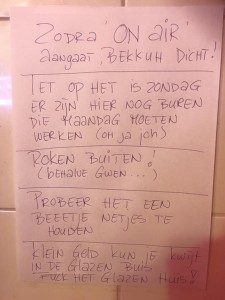 ZODRA 'ON AIR'
AANGAAT, BEKKUH DICHT!
LET OP HET IS ZONDAG
ER ZIJN HIER NOG BUREN
DIE MAANDAG MOETEN
WERKEN (OH JA JOH)
ROKEN BUITEN!
(BEHALVE GWEN...)
PROBEER HET EEN
BEEETJE NETJES TE
HOUDEN
KLEIN GELD KUN JE KWIJT
IN DE GLAZEN BUIS
FUCK HET GLAZEN HUIS!